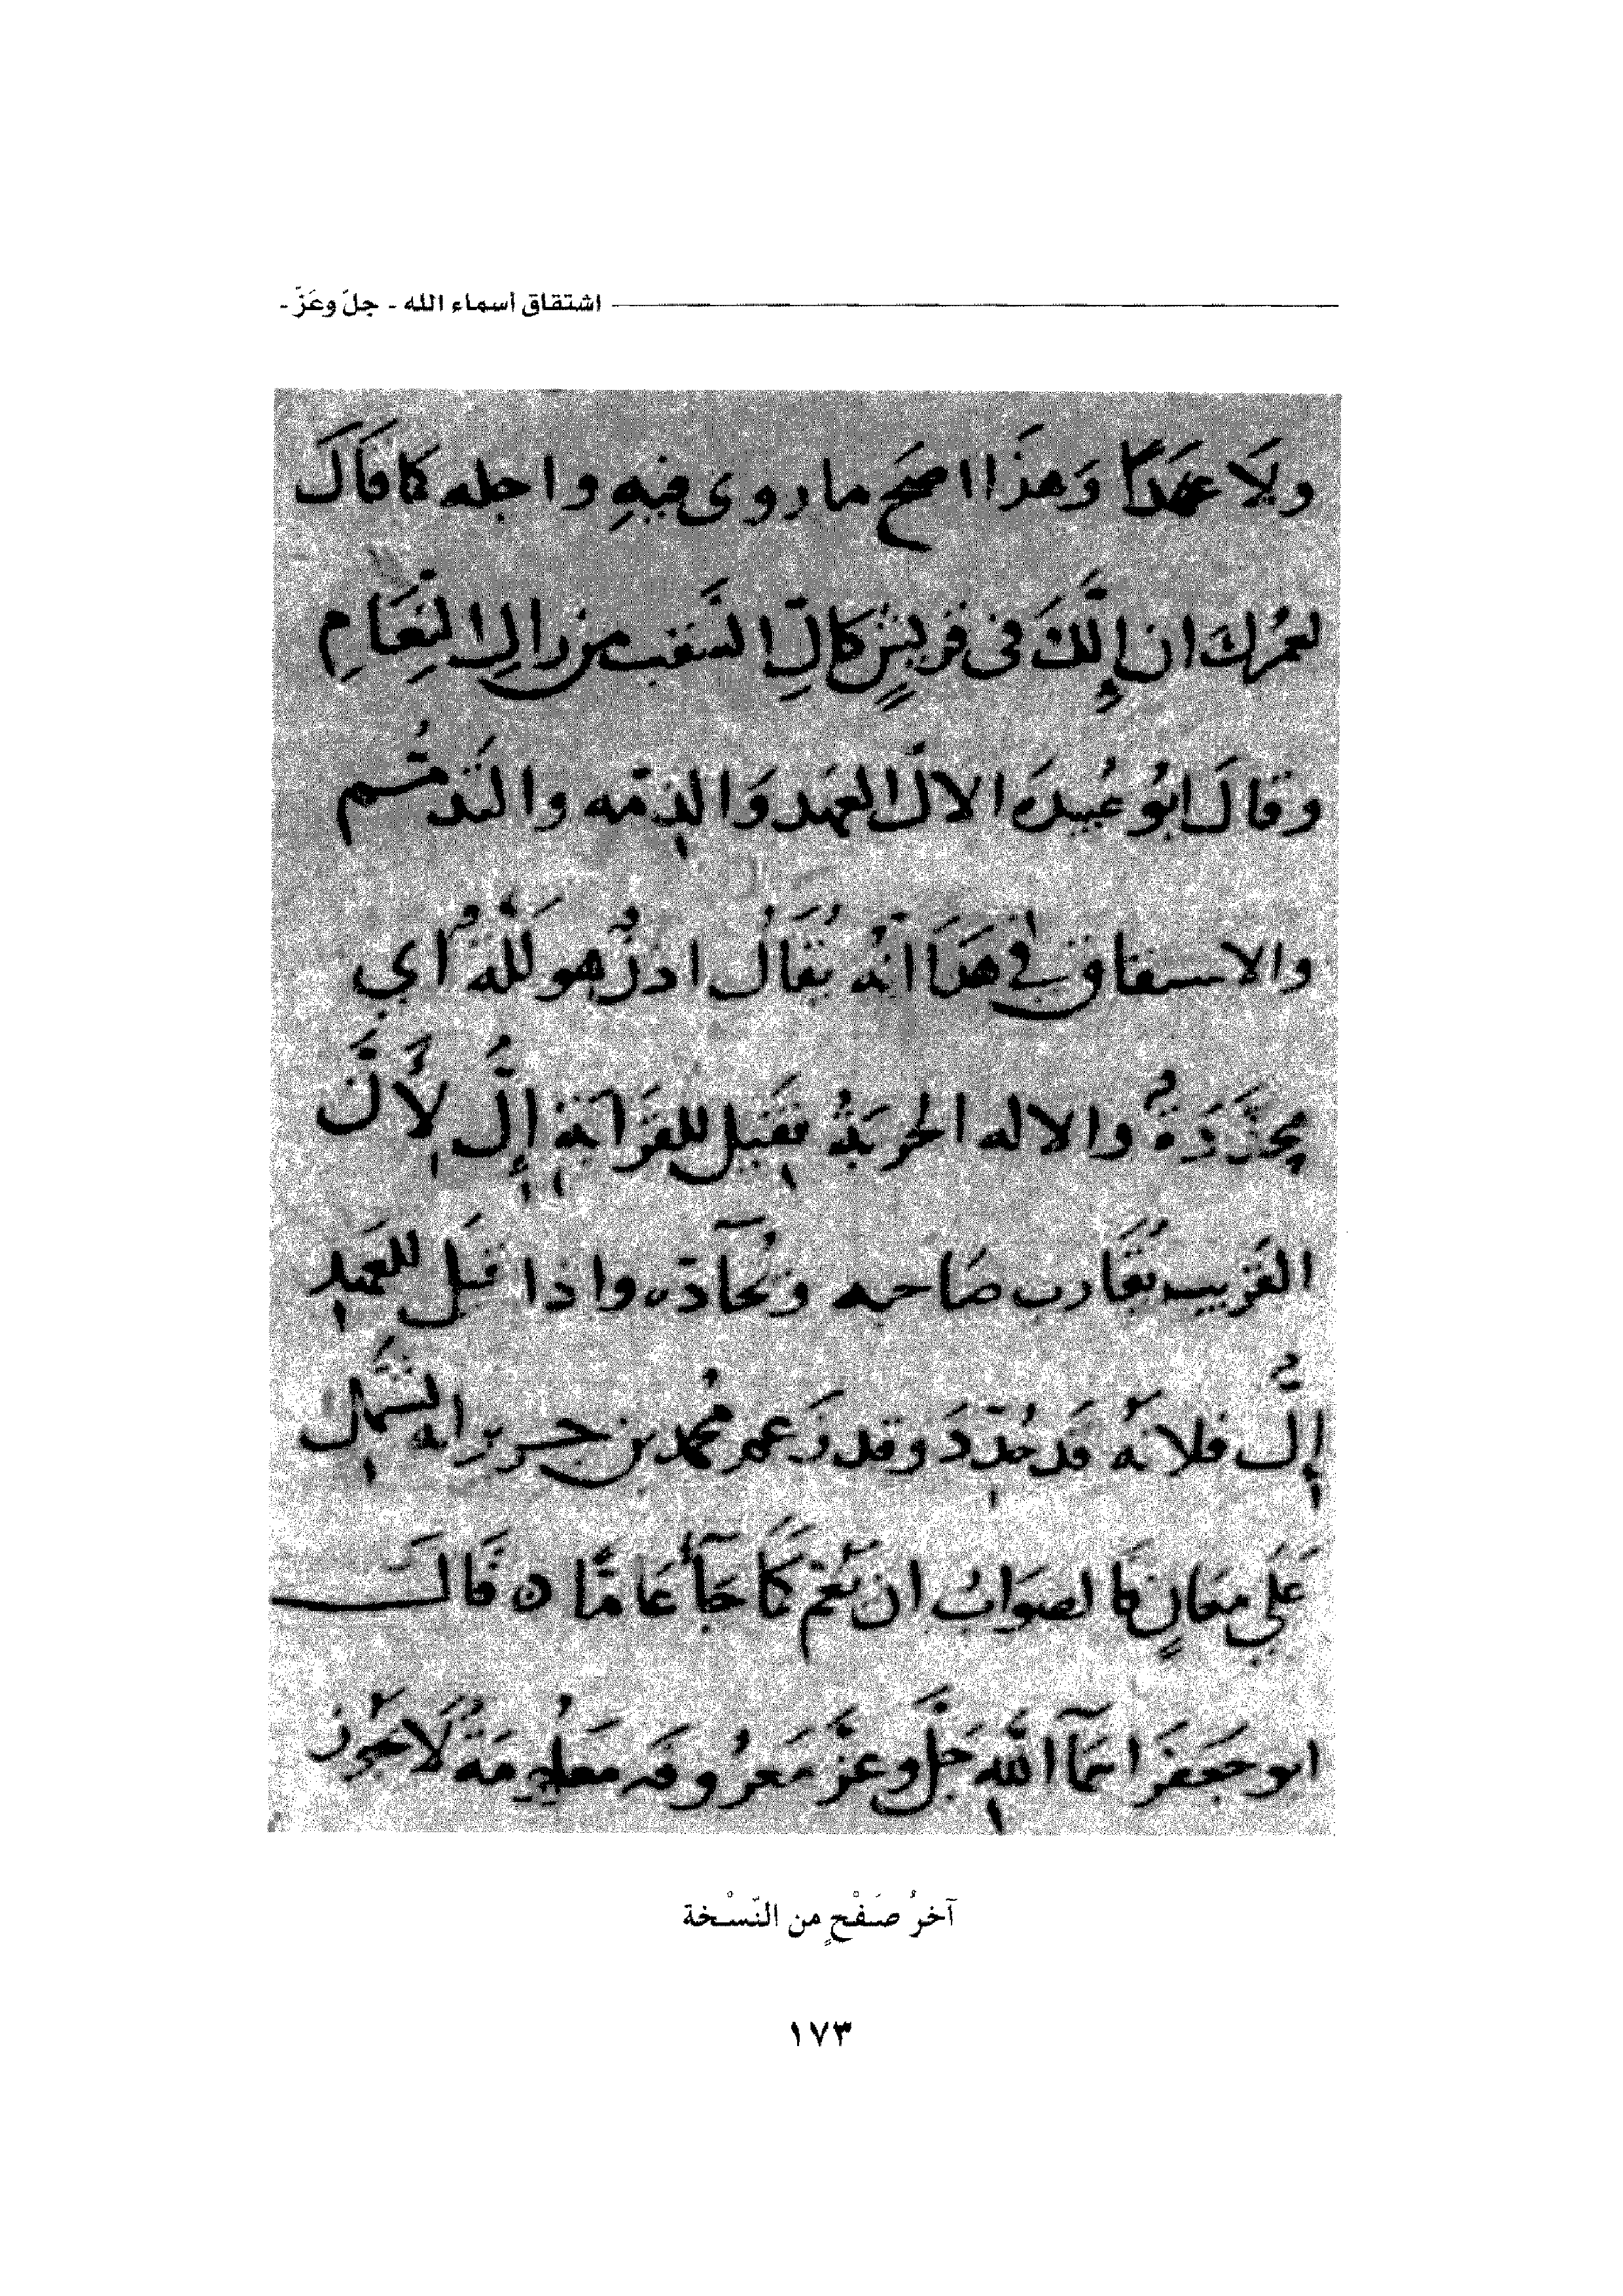 اشتقاق أسماء الله - جلّ وعَزّ -
ولَا عَهدًا وَهذَا اصَح ما روى فيهِ واجله كما قَالَ
لعمرُكَ ان إِلَّكَ فى قريشٍ كالِّ السَّقب من رال النَّعَامِ
وقالَ ابُو عُبيدَه الالُّ العَهد وَالذِمّه والتَّذمُّم
والاسىقاق فِي هَذَا انّه يُقَالُ اذنٌ مُؤلَّلَةٌ اي
مُحَدَّدَةٌ والاله الحَربَةُ فقِيلَ للقرَابَةِ إِلٌّ لِأَنَّ
القَرِيب يُقَارب صَاحبه وَيُحَآدّه واذا قيلَ للعَهدِ
إِلٌّ فلانّه قَد حُدِّدَ وقد زَعم مُحمد بن جرير انه اشتَمل
عَلَى مَعَانٍ فالصوَابُ ان يَعُمّ كَمَا جَآءَ عَامًّا ه قَالَ
ابو جَعفَر اسمَآ اللّهِ جَلَّ وعزَّ مَعرُوفَه مَعلُومَةٌ لَا يجُوزُ
آخرُ صَفْحٍ من النّسْخة
١٧٣